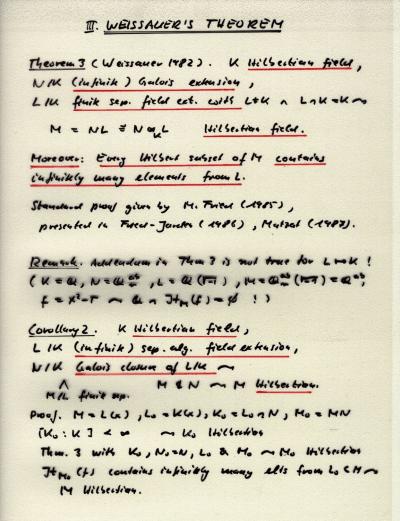 III. WEISSAUER'S THEOREM
Theorem 3 (Weissauer 1982). K Hilbertian field,
N/K (infinite) Galois extension,
L/K finite sep. field ext. with L≠K ∧ L∩N=K ⇝
M = NL ≅ N⊗_K L Hilbertian field.
Moreover: Every Hilbert subset of M contains
infinitely many elements from L.
Standard proof given by M. Fried (1985),
presented in Fried-Jarden (1986), Matzat (1987).
Remark. Addendum in Thm 3 is not true for L=K !
(K = Q, N = , L = Q(√-1), M = ,
f = x²- ⇝ Q ∩ H_M(f) = ∅ !)
Corollary 2. K Hilbertian field,
L/K (infinite) sep. alg. field extension,
N/K Galois closure of L/K ⇝
∧ M ⊄ N ⇝ M Hilbertian.
M/L finite sep.
Proof. M = L(x), L₀ = K(x), K₀ = L₀∩N, M₀ = MN
[K₀ : K] < ∞ ⇝ K₀ Hilbertian
Thm. 3 with K₀, N₀=N, L₀ & M₀ ⇝ M₀ Hilbertian
H_M₀(f) contains infinitely many elts from L₀ ⊂ M ⇝
M Hilbertian.